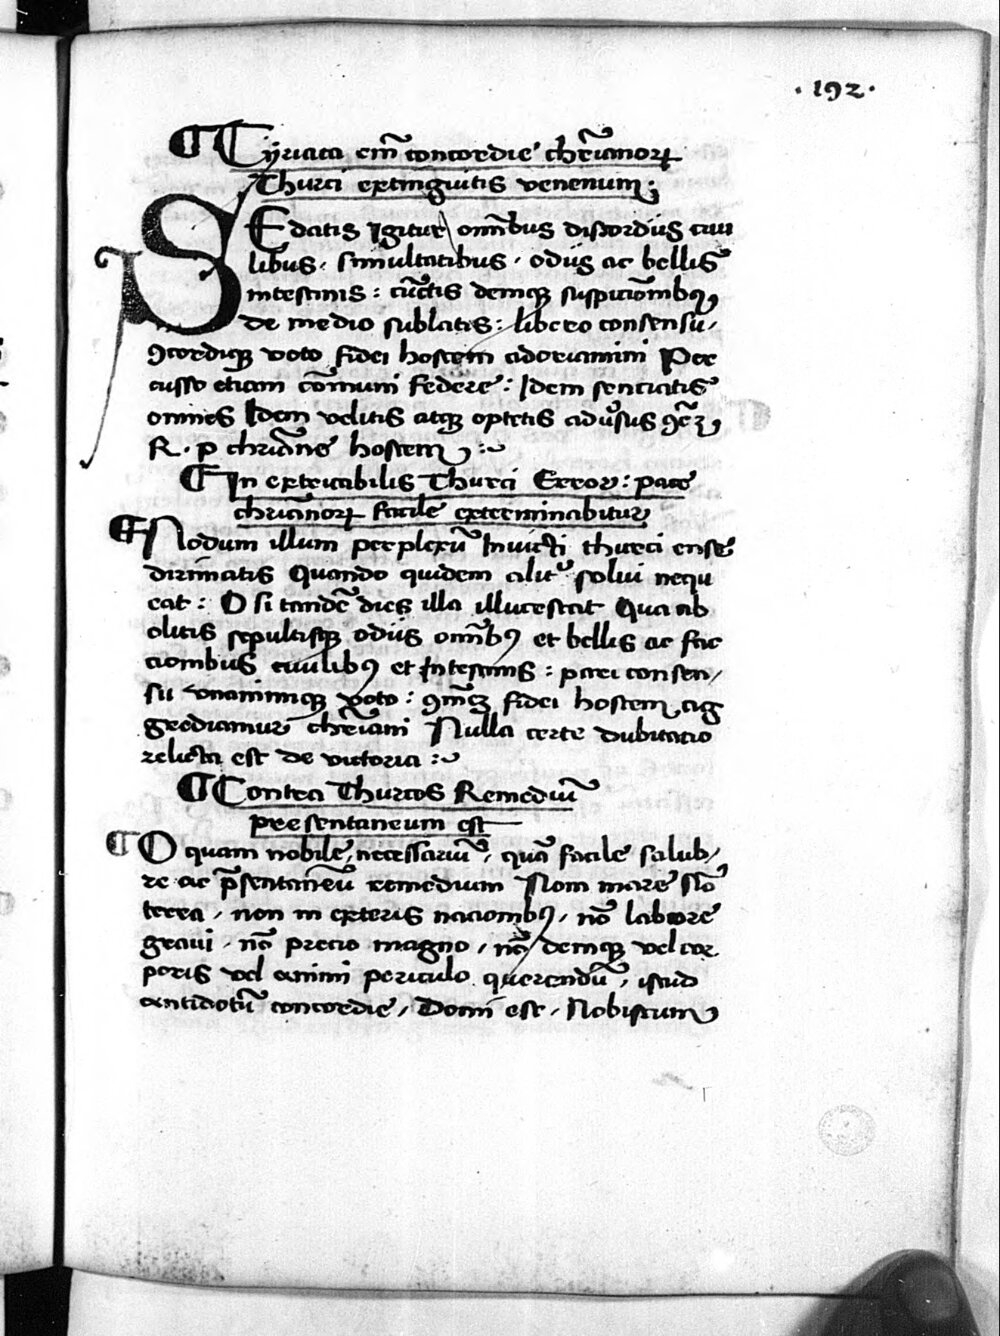 · 192 ·
¶ Tÿriaca em̄ concordie chr̄ianoꝝ
Thurci extinguitis venenum ;
SEdatis Igitur om̄ibus discordiis ciui
libus, simultatibus, odiis ac bellis
intestinis : cūctis demqꝫ suspiciōmbꝰ,
de medio sublatis : libero consensu,
ꝯcordiqꝫ voto fidei hostem adoriamini Per
cusso etiam cōmuni federe : Idem senciatis
omnes Idem velitis atqꝫ optetis adūsus
R. p chriāne hostem :~
¶ In extricabilis Thurci Error : pace
chriānoꝝ facile exterminabitur
¶ Nodum illum perplexū Inuicti thurci ense
dirimatis Quando quidem alitᵉ solui nequ
eat : O si tandē dies illa illucescat Qua ab
olitis sepultisqꝫ odiis om̄ibꝰ et bellis ac fac
ciombus ciuilibꝰ et Intestinis : pari consen,
su vnanimiqꝫ voto : fidei hostem ag
grediamur chr̄iani Nulla certe dubitacio
relicta est de victoria :~
¶ Contra Thurcos Remediū
presentaneum est
¶ O quam nobile, necessariū, quā facile salub,
re ac p̄sentaneū remedium Non mare Nō
terra, non in exteris naciombꝰ, nō labore
graui, nō precio magno, nō demqꝫ vel cor
poris vel animi periculo querendū, istud
antidotū concordie, Domi est, Nobiscum